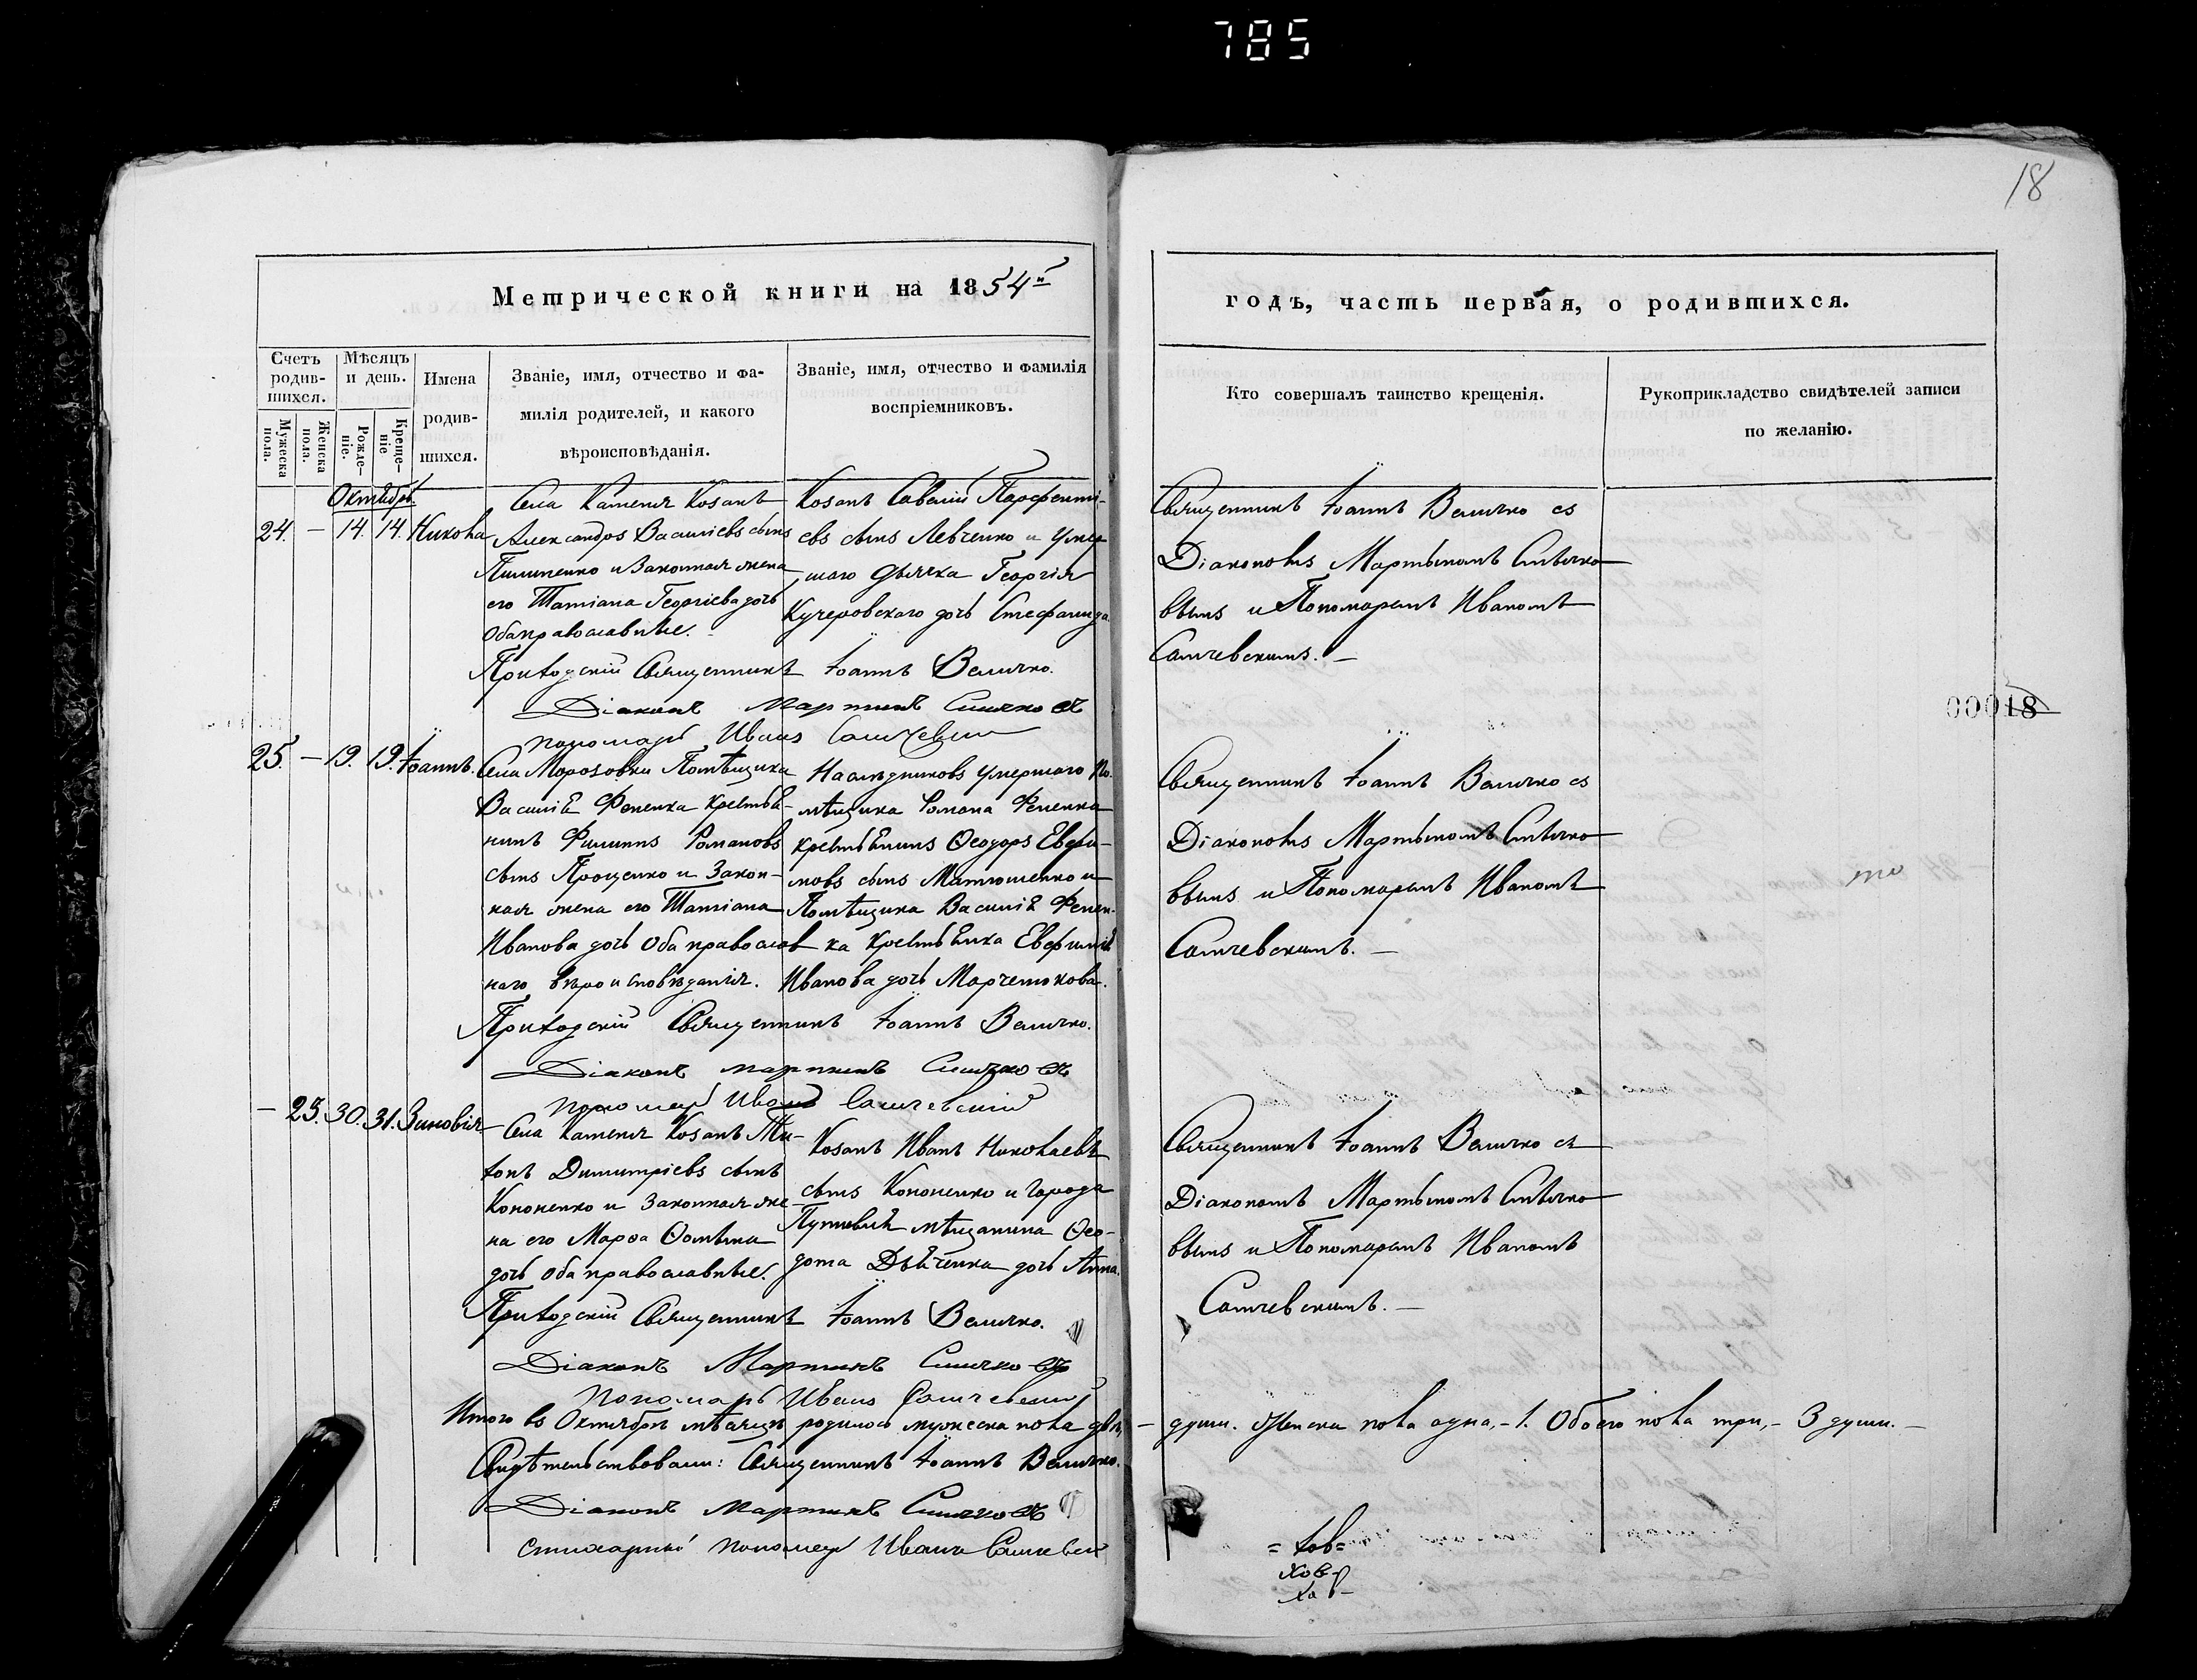 785
18
Метрической книги на 1854й
годъ, часть первая, о родившихся.
Счетъ родив-шихся.
Мѣсяцъ и день.
Имена родив-шихся.
Званіе, имя, отчество и фа-
милія родителей, и какого
вѣроисповѣданія.
Званіе, имя, отчество и фамилія
воспріемниковъ.
Мужеска пола.
Женска пола.
Рожде-ніе.
Креще-ніе
Кто совершалъ таинство крещенія.
Рукоприкладство свидѣтелей записи
по желанію.
Октябрь
24. — 14. 14. Никола
Села Каменя Козакъ
Александръ Василіевъ сынъ
Пилипенко и Законная жена
его Татіана Георгіева дочь
оба православные.
Козакъ Савелій Парфенті-
евъ сынъ Левченко и Умер
шаго Дьячка Георгія
Кучеровскаго дочь Стефанида
Священникъ Іоаннъ Величко съ
Діакономъ Мартыномъ Симячко
вымъ и Пономаремъ Иваномъ
Самчевскимъ. —
Приходскій Священникъ Іоаннъ Величко.
Діаконъ Мартинъ
пономарь Иванъ Самчевскій
25. — 19. 19. Іоаннъ.
Села Морозовки Помѣщика
Василія Фененка крестья-
нинъ Филиппъ Романовъ
сынъ Проценко и Закон-
ная жена его Татіана
Иванова дочь оба православ
наго вѣроисповѣданія.
Наслѣдниковъ умершаго По-
мѣщика Романа Фененка
крестьянинъ Ѳеодоръ Евфи-
мовъ сынъ Матюшенко и
Помѣщика Василія Фенен-
ка крестьянка Евфимія
Иванова дочь
Священникъ Іоаннъ Величко съ
Діакономъ Мартыномъ Симячко
вымъ и Пономаремъ Иваномъ
Самчевскимъ. —
Приходскій Священникъ Іоаннъ Величко.
Діаконъ Мартинъ
пономарь Иванъ Самчевскій
— 25. 30. 31. Зиновія
Села Каменя Козакъ Ти-
хонъ Димитріевъ сынъ
Кононенко и Законная же-
на его Марѳа Ѳомина
дочь оба православные.
Козакъ Иванъ Николаевъ
сынъ Кононенко и Города
Путивля мѣщанина Ѳео-
дота дочь Анна.
Священникъ Іоаннъ Величко съ
Діакономъ Мартыномъ Симячко
вымъ и Пономаремъ Иваномъ
Самчевскимъ. —
Приходскій Священникъ Іоаннъ Величко.
Діаконъ Мартинъ
Пономарь Иванъ Самчевскій
Итого въ Октябрѣ мѣсяцѣ родилось мужеска пола двѣ, — души. Женска пола одна, — 1. Обоего пола три, — 3 души. —
Свидѣтельствовали: Священникъ Іоаннъ Величко.
Діаконъ Мартинъ
стихарный пономарь Иванъ Самчевскій
00018